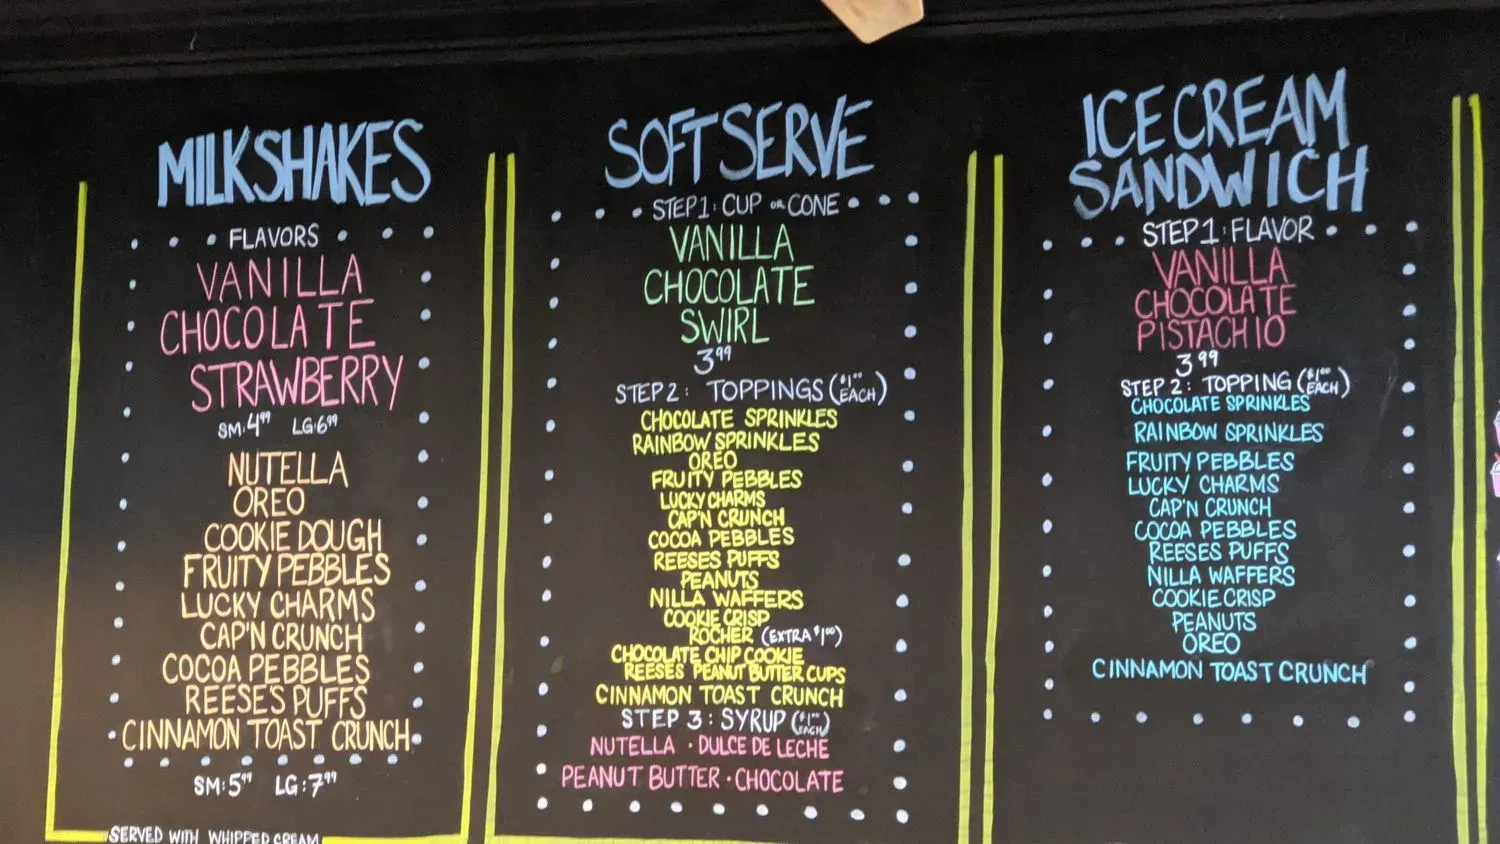 MILKSHAKES
FLAVORS
VANILLA
CHOCOLATE
STRAWBERRY
SM:4.99 LG:6.99
NUTELLA
OREO
COOKIE DOUGH
FRUITY PEBBLES
LUCKY CHARMS
CAP'N CRUNCH
COCOA PEBBLES
REESE'S PUFFS
CINNAMON TOAST CRUNCH
SM:5.99 LG:7.99
SERVED WITH WHIPPED CREAM
SOFT SERVE
STEP 1: CUP OR CONE
VANILLA
CHOCOLATE
SWIRL
3.99
STEP 2: TOPPINGS ($1.00 EACH)
CHOCOLATE SPRINKLES
RAINBOW SPRINKLES
OREO
FRUITY PEBBLES
LUCKY CHARMS
CAP'N CRUNCH
COCOA PEBBLES
REESES PUFFS
PEANUTS
NILLA WAFFERS
COOKIE CRISP
ROCHER (EXTRA $1.00)
CHOCOLATE CHIP COOKIE
REESES PEANUT BUTTER CUPS
CINNAMON TOAST CRUNCH
STEP 3: SYRUP ($1.00 EACH)
NUTELLA · DULCE DE LECHE
PEANUT BUTTER · CHOCOLATE
ICE CREAM
SANDWICH
STEP 1: FLAVOR
VANILLA
CHOCOLATE
PISTACHIO
3.99
STEP 2: TOPPING ($1.00 EACH)
CHOCOLATE SPRINKLES
RAINBOW SPRINKLES
FRUITY PEBBLES
LUCKY CHARMS
CAP'N CRUNCH
COCOA PEBBLES
REESES PUFFS
NILLA WAFFERS
COOKIE CRISP
PEANUTS
OREO
CINNAMON TOAST CRUNCH